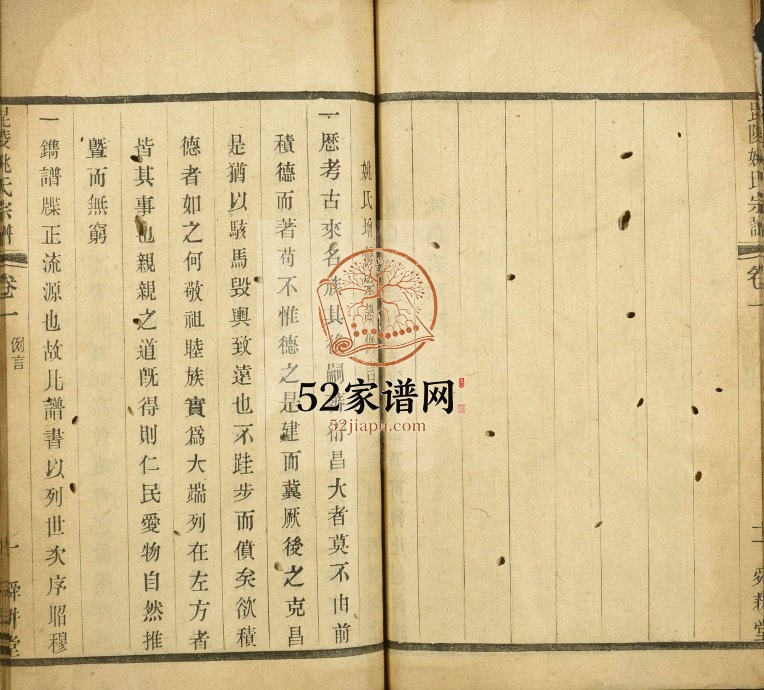 毘陵姚氏宗譜
卷一
士
舜耕堂
姚氏增
一歷考古來名族其後嗣
衍昌大者莫不由前
積德而著苟不惟德之是建而冀厥後之克昌
是猶以駭馬毀輿致遠也不跬步而僨矣欲積
德者如之何敬祖睦族實爲大端列在左方者
皆其事也親親之道旣得則仁民愛物自然推
曁而無窮
一鐫譜牒正流源也故比譜書以列世次序昭穆
毘陵姚氏宗譜
卷一
例言
一
舜耕堂
52家谱网
52jiapu.com